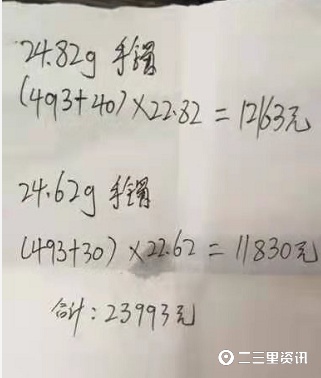 24.82g 手镯
(493+40)×22.82=12163元
24.62g 手镯
(493+30)×22.62=11830元
合计:23993元
二三里资讯